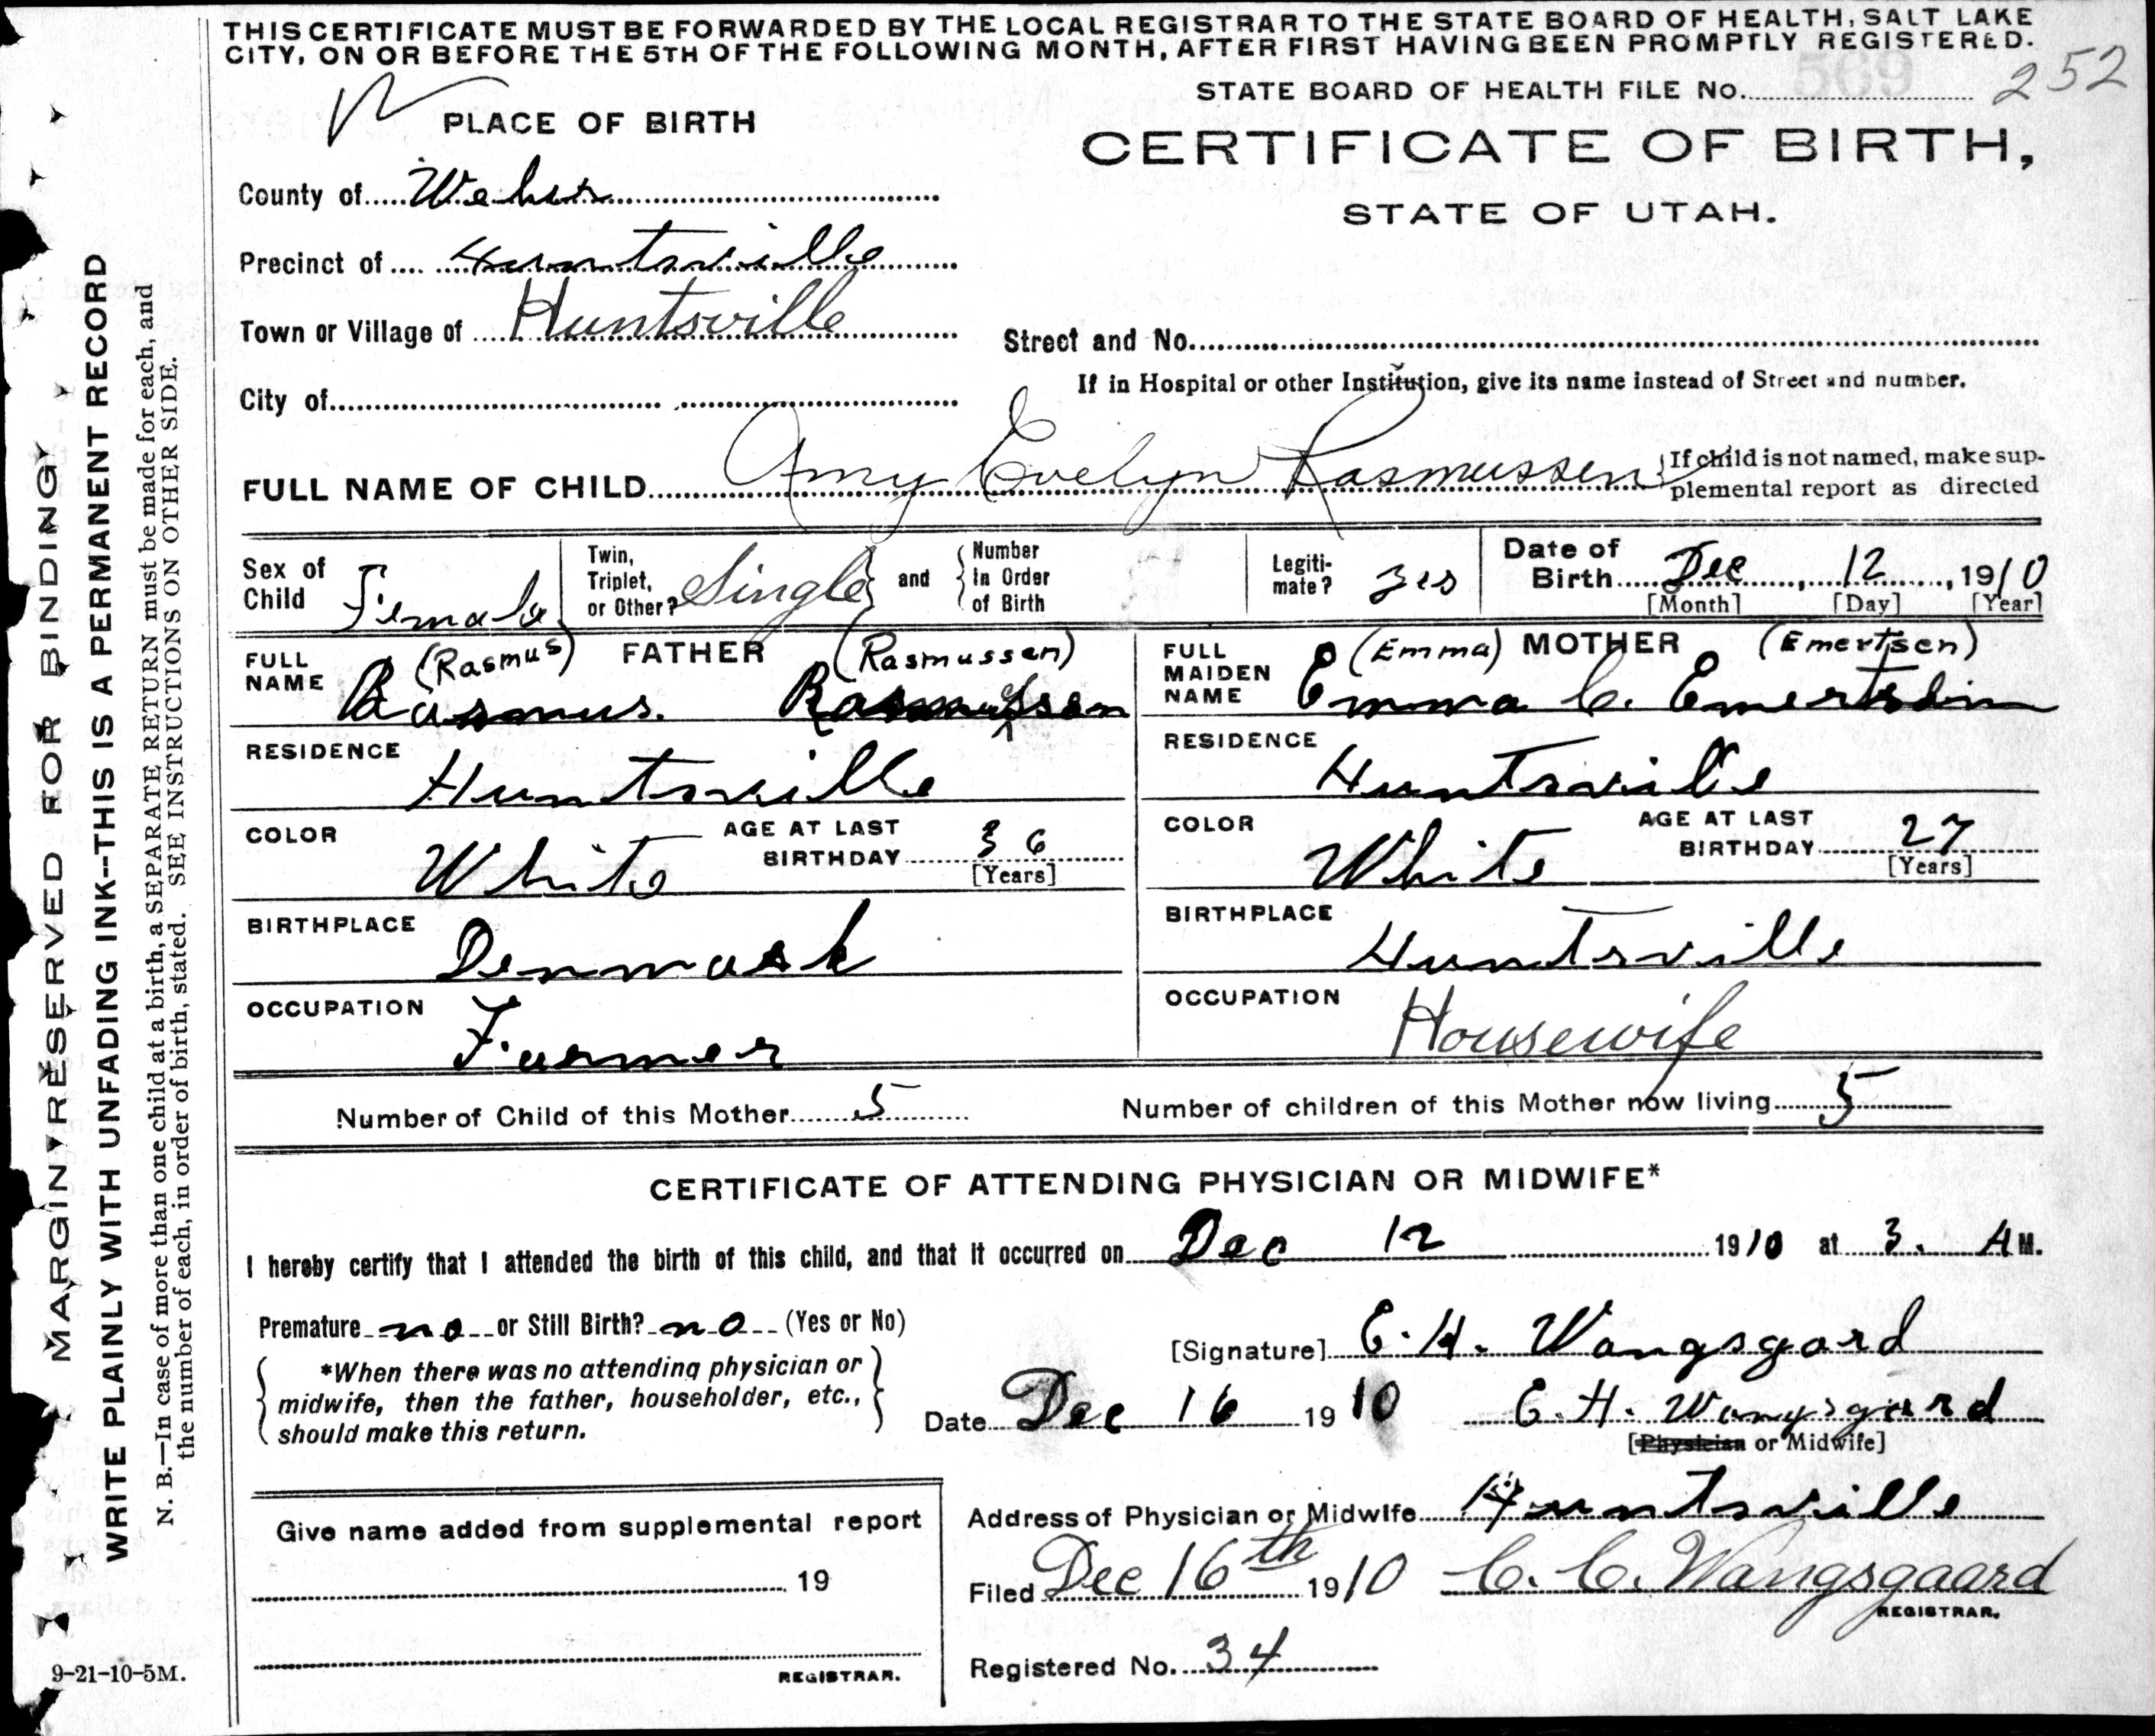 THIS CERTIFICATE MUST BE FORWARDED BY THE LOCAL REGISTRAR TO THE STATE BOARD OF HEALTH, SALT LAKE
CITY, ON OR BEFORE THE 5TH OF THE FOLLOWING MONTH, AFTER FIRST HAVING BEEN PROMPTLY REGISTERED.
569
252
STATE BOARD OF HEALTH FILE No.
PLACE OF BIRTH
CERTIFICATE OF BIRTH,
STATE OF UTAH.
County of Weber
Precinct of Huntsville
Town or Village of Huntsville
Street and No.
If in Hospital or other Institution, give its name instead of Street and number.
City of
FULL NAME OF CHILD Amy Evelyn Rasmussen
If child is not named, make sup-
plemental report as directed
Sex of Child Female
Twin, Triplet, or Other? Single and Number In Order of Birth
Legiti-mate? yes
Date of Birth Dec, 12, 1910
[Month] [Day] [Year]
FULL NAME (Rasmus) FATHER (Rasmussen)
Rasmus. Rasmussen
FULL MAIDEN NAME (Emma) MOTHER (Emertsen)
Emma C. Emertsen
RESIDENCE Huntsville
RESIDENCE Huntsville
COLOR White AGE AT LAST BIRTHDAY 36 [Years]
COLOR White AGE AT LAST BIRTHDAY 27 [Years]
BIRTHPLACE Denmark
BIRTHPLACE Huntsville
OCCUPATION Farmer
OCCUPATION Housewife
Number of Child of this Mother 5
Number of children of this Mother now living 5
CERTIFICATE OF ATTENDING PHYSICIAN OR MIDWIFE*
I hereby certify that I attended the birth of this child, and that it occurred on Dec 12 1910 at 3. A M.
Premature no or Still Birth? no (Yes or No)
*When there was no attending physician or
midwife, then the father, householder, etc.,
should make this return.
[Signature] E. H. Wangsgard
Date Dec 16 1910 E. H. Wangsgard
[Physician or Midwife]
Address of Physician or Midwife Huntsville
Filed Dec 16th 1910 C. C. Wangsgaard
REGISTRAR.
Registered No. 34
Give name added from supplemental report
19
REGISTRAR.
MARGIN RESERVED FOR BINDING
WRITE PLAINLY WITH UNFADING INK--THIS IS A PERMANENT RECORD
N. B.—In case of more than one child at a birth, a SEPARATE RETURN must be made for each, and
the number of each, in order of birth, stated. SEE INSTRUCTIONS ON OTHER SIDE.
9-21-10-5M.